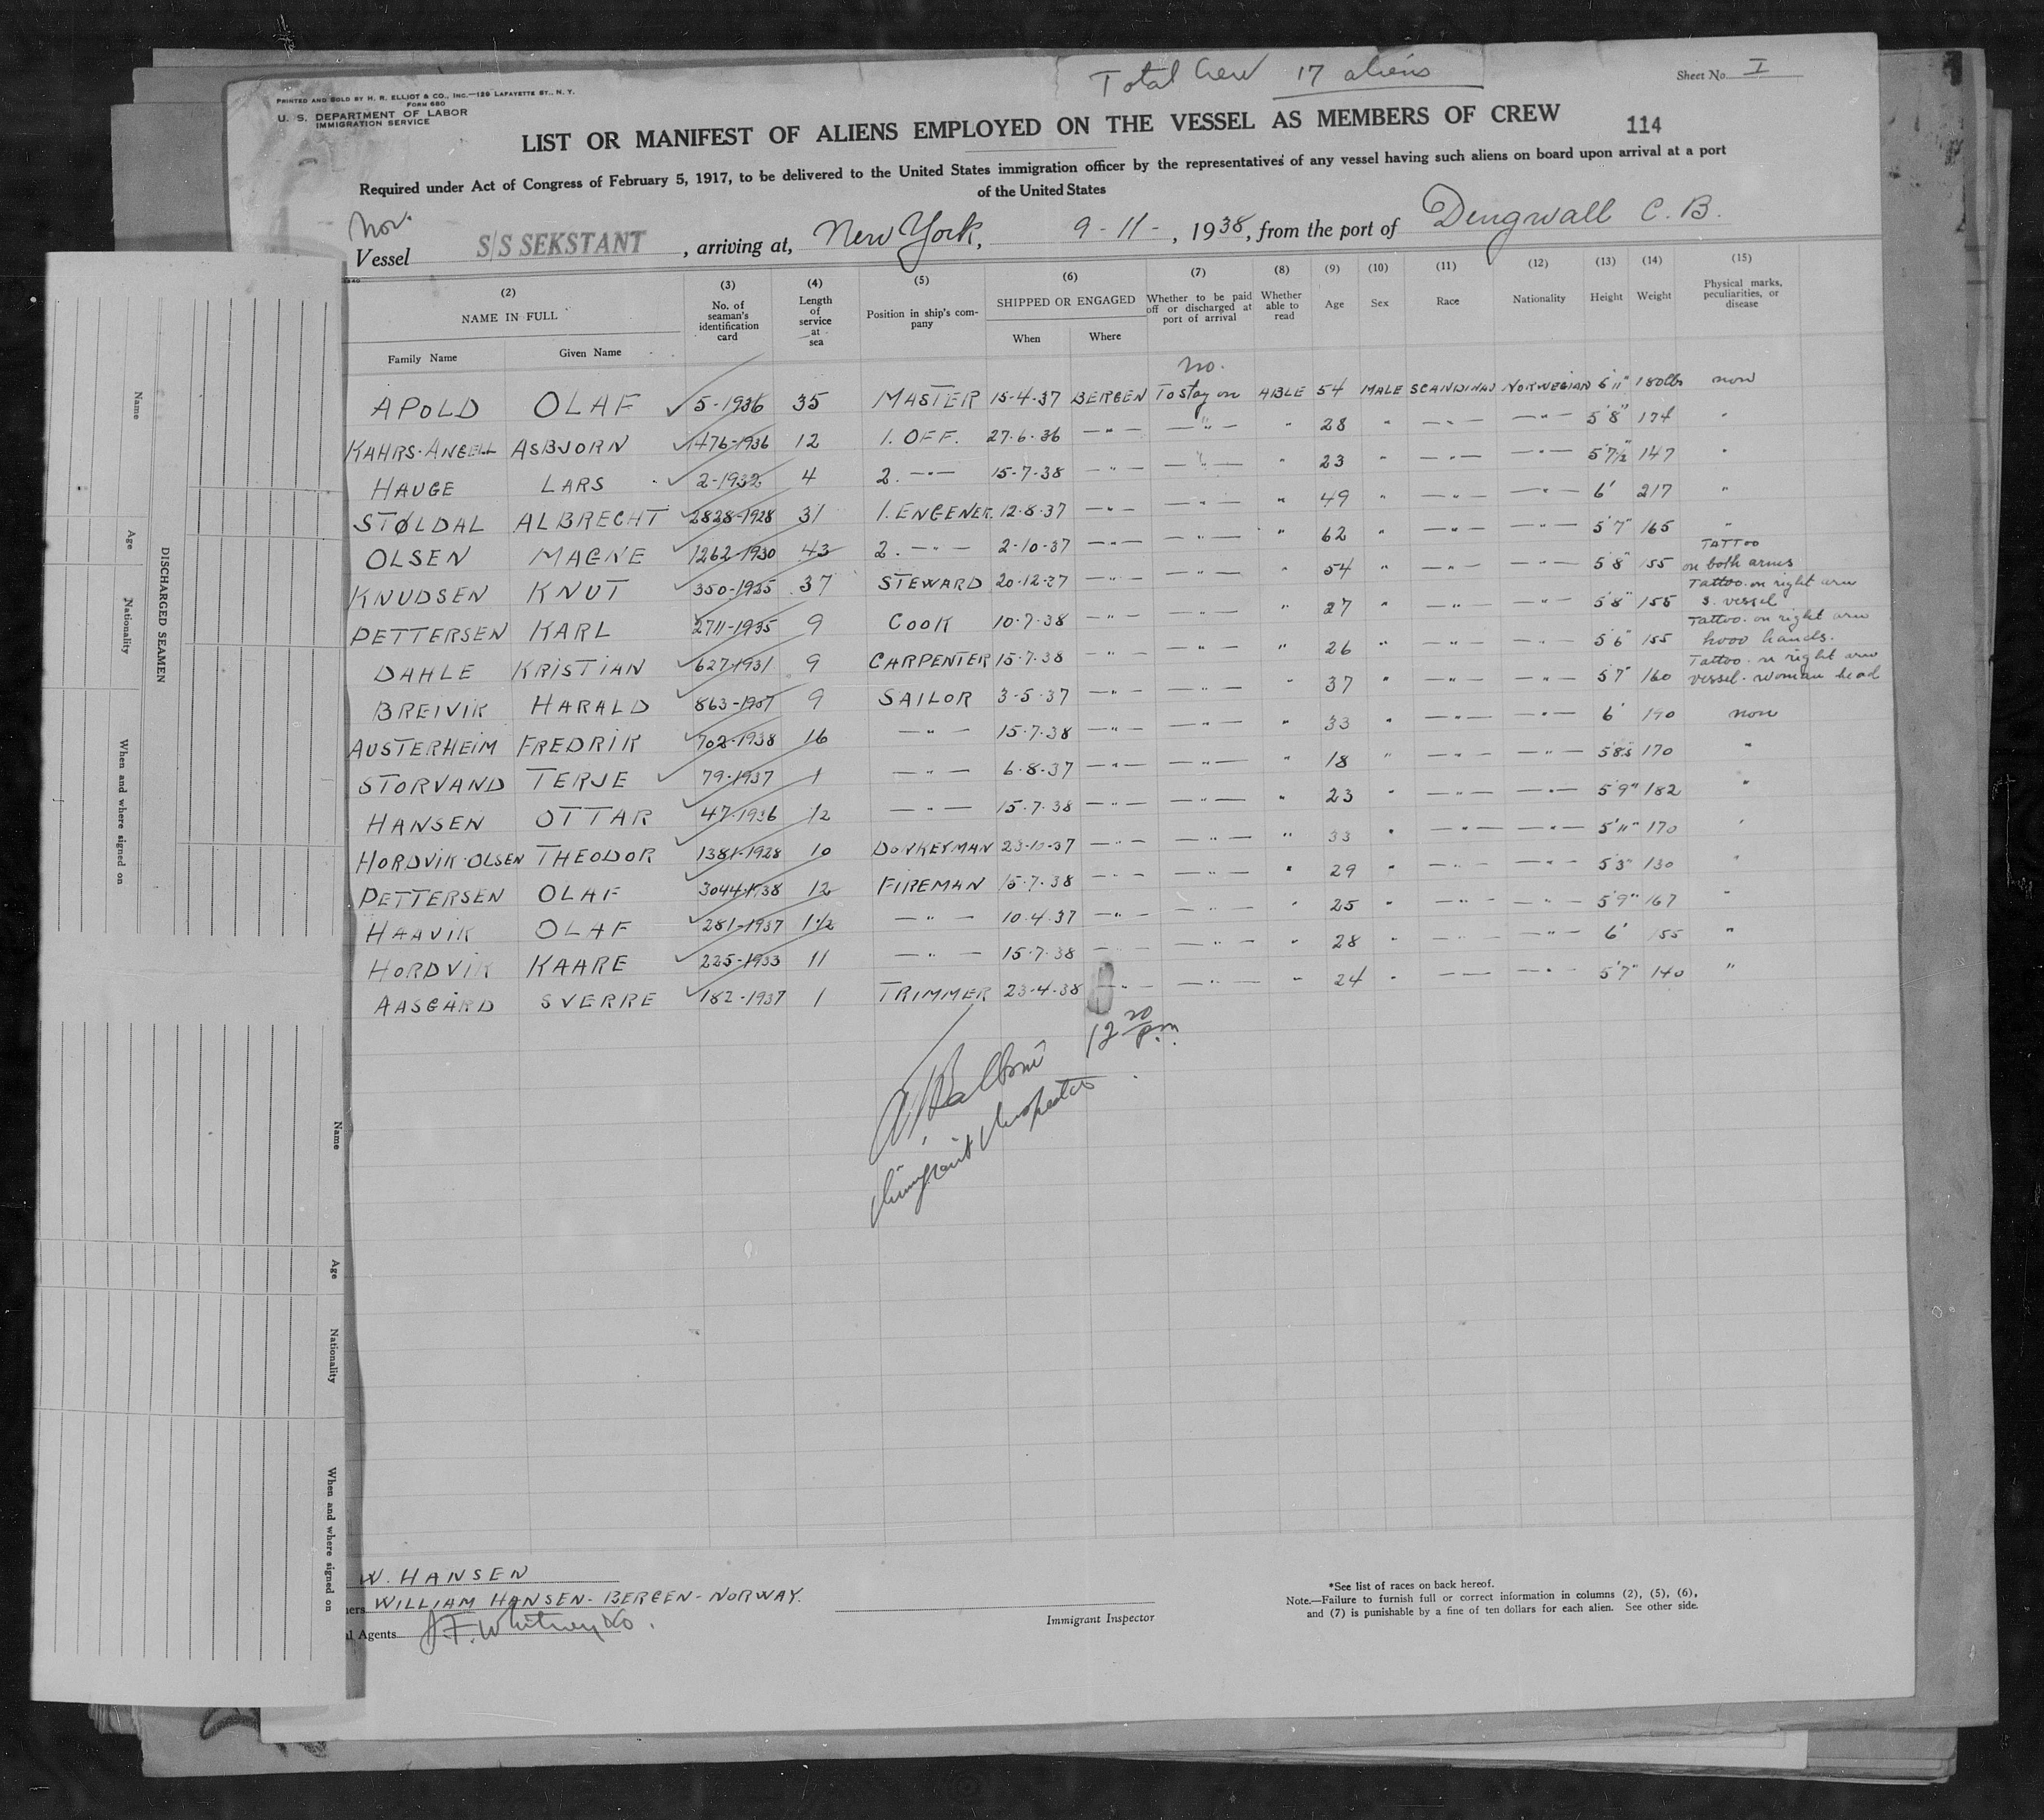 Total Crew 17 aliens
Sheet No. I
PRINTED AND SOLD BY H. R. ELLIOT & CO., INC.—129 LAFAYETTE ST., N. Y.
FORM 680
U. S. DEPARTMENT OF LABOR
IMMIGRATION SERVICE
LIST OR MANIFEST OF ALIENS EMPLOYED ON THE VESSEL AS MEMBERS OF CREW
114
Required under Act of Congress of February 5, 1917, to be delivered to the United States immigration officer by the representatives of any vessel having such aliens on board upon arrival at a port
of the United States
Nor.
Vessel S/S SEKSTANT, arriving at, New York, 9-11-, 1938, from the port of Dingwall C. B.
(2) (3) (4) (5) (6) (7) (8) (9) (10) (11) (12) (13) (14) (15)
NAME IN FULL No. of seaman's identification card Length of service at sea Position in ship's company SHIPPED OR ENGAGED Whether to be paid off or discharged at port of arrival Whether able to read Age Sex Race Nationality Height Weight Physical marks, peculiarities, or disease
Family Name Given Name When Where
no.
APOLD OLAF 5-1936 35 MASTER 15-4-37 BERGEN To stay on ABLE 54 MALE SCANDINAV NORWEGIAN 5'11" 180lbs non
KAHRS-ANGELL ASBJORN 1476-1936 12 1. OFF. 27.6.36 —"— —"— " 28 " —"— —"— 5'8" 174 "
HAUGE LARS 2-1932 4 2. —"— 15-7-38 —"— —"— " 23 " —"— —"— 5'7½ 147 "
STØLDAL ALBRECHT 2828-1928 31 1. ENGENER. 12-8-37 —"— —"— " 49 " —"— —"— 6' 217 "
OLSEN MAGNE 1262-1930 43 2. —"— 2-10-37 —"— —"— " 62 " —"— —"— 5'7" 165 "
KNUDSEN KNUT 350-1925 37 STEWARD 20-12-37 —"— —"— " 54 " —"— —"— 5'8" 155 TATTOO on both arms
PETTERSEN KARL 2711-1935 9 COOK 10-7-38 —"— —"— " 27 " —"— —"— 5'8" 155 Tattoo. on right arm s. vessel
DAHLE KRISTIAN 627-1931 9 CARPENTER 15-7-38 —"— —"— " 26 " —"— —"— 5'6" 155 Tattoo. on right arm hands.
BREIVIK HARALD 863-1937 9 SAILOR 3-5-37 —"— —"— " 37 " —"— —"— 5'7" 160 Tattoo. on right arm vessel. woman head
AUSTERHEIM FREDRIK 702-1938 16 —"— 15-7-38 —"— —"— " 33 " —"— —"— 6' 190 non
STORVAND TERJE 79-1937 1 —"— 6-8-37 —"— —"— " 18 " —"— —"— 5'8.5 170 "
HANSEN OTTAR 47-1936 12 —"— 15-7-38 —"— —"— " 23 " —"— —"— 5'9" 182 "
HORDVIK-OLSEN THEODOR 1381-1928 10 DONKEYMAN 23-10-37 —"— —"— " 33 " —"— —"— 5'11" 170 "
PETTERSEN OLAF 3044-1938 12 FIREMAN 15-7-38 —"— —"— " 29 " —"— —"— 5'3" 130 "
HAAVIK OLAF 281-1937 1½ —"— 10-4-37 —"— —"— " 25 " —"— —"— 5'9" 167 "
HORDVIK KAARE 225-1933 11 —"— 15-7-38 —"— —"— " 28 " —"— —"— 6' 155 "
AASGÅRD SVERRE 182-1937 1 TRIMMER 23-4-38 —"— —"— " 24 " —"— —"— 5'7" 140 "
12 20 pm.
Immigrant Inspector
W. HANSEN
ners WILLIAM HANSEN-BERGEN-NORWAY.
l Agents J. F. Whitney & Co.
Immigrant Inspector
*See list of races on back hereof.
Note.—Failure to furnish full or correct information in columns (2), (5), (6),
and (7) is punishable by a fine of ten dollars for each alien. See other side.
DISCHARGED SEAMEN
Name Age Nationality When and where signed on
Name Age Nationality When and where signed on